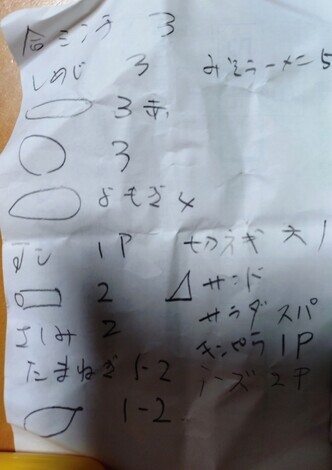 合ミンチ 3
しめじ 3
みそラーメン 5
3 赤
3
よもぎ 4
すし 1P
切ネギ 大1
2
サンド
さしみ 2
サラダ スパ
たまねぎ 1-2
キンピラ 1P
チーズ 2P
1-2